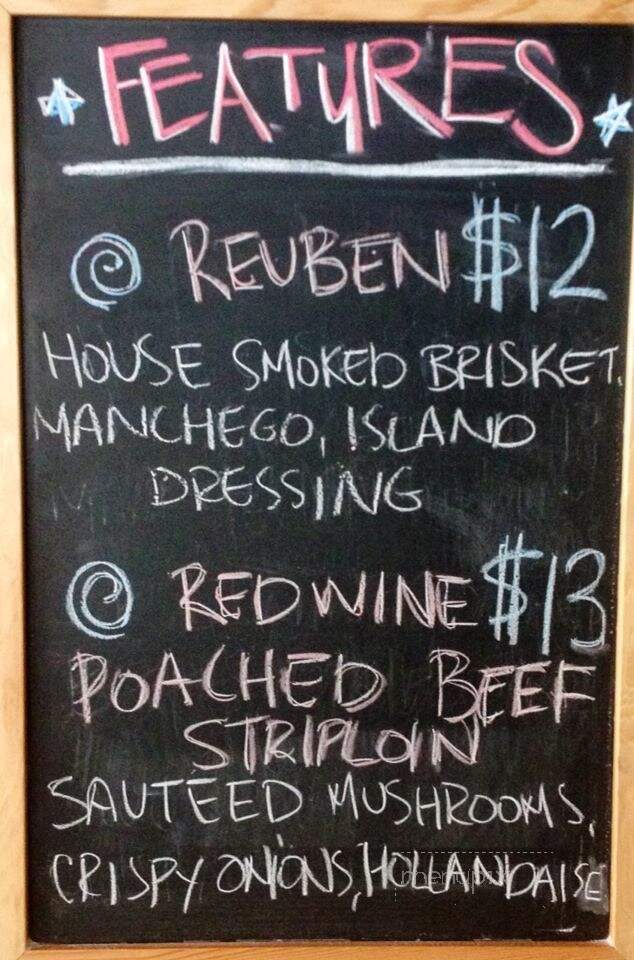 FEATURES
REUBEN $12
HOUSE SMOKED BRISKET,
MANCHEGO, ISLAND
DRESSING
REDWINE $13
POACHED BEEF
STRIPLOIN
SAUTEED MUSHROOMS,
CRISPY ONIONS, HOLLANDAISE
menupix